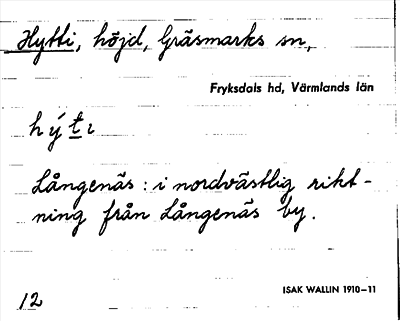 Hytti, höjd, Gräsmarks sn,
Fryksdals hd, Värmlands län
hý t ı
Långenäs : i nordvästlig rikt-
ning från Långenäs by.
12
ISAK WALLIN 1910-11